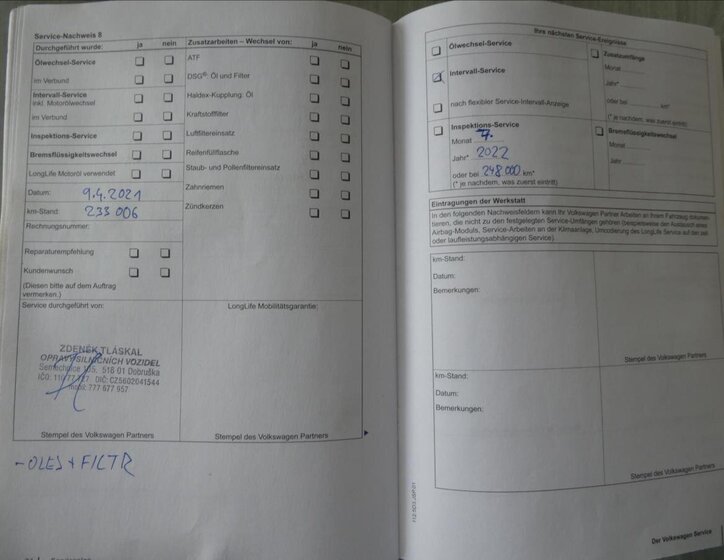 Service-Nachweis 8
Durchgeführt wurde: ja nein
Ölwechsel-Service
im Verbund
Intervall-Service
inkl. Motorölwechsel
im Verbund
Inspektions-Service
Bremsflüssigkeitswechsel
LongLife Motoröl verwendet
Datum: 9.4.2021
km-Stand: 233 006
Rechnungsnummer:
Reparaturempfehlung
Kundenwunsch
(Diesen bitte auf dem Auftrag
vermerken.)
Zusatzarbeiten – Wechsel von: ja nein
ATF
DSG®: Öl und Filter
Haldex-Kupplung: Öl
Kraftstofffilter
Luftfiltereinsatz
Reifenfüllflasche
Staub- und Pollenfiltereinsatz
Zahnriemen
Zündkerzen
Service durchgeführt von:
LongLife Mobilitätsgarantie:
ZDENĚK TLÁSKAL
OPRAVY SILNIČNÍCH VOZIDEL
Semechnice 105, 518 01 Dobruška
DIČ: CZ5602041544
mobil: 777 677 957
Stempel des Volkswagen Partners
Stempel des Volkswagen Partners
- OLEJ + FILTR
Ihre nächsten Service-Ereignisse
Ölwechsel-Service
Intervall-Service
nach flexibler Service-Intervall-Anzeige
Inspektions-Service
Monat 7.
Jahr* 2022
oder bei 248.000 km*
(* je nachdem, was zuerst eintritt)
Zusatzumfänge
Monat
Jahr*
oder bei km*
(* je nachdem, was zuerst eintritt)
Bremsflüssigkeitswechsel
Monat
Jahr
Eintragungen der Werkstatt
In den folgenden Nachweisfeldern kann Ihr Volkswagen Partner Arbeiten an Ihrem Fahrzeug dokumen-
tieren, die nicht zu den festgelegten Service-Umfängen gehören (beispielsweise den Austausch eines
Airbag-Moduls, Service-Arbeiten an der Klimaanlage, Umcodierung des LongLife Service auf den zeit-
oder laufleistungsabhängigen Service).
km-Stand:
Datum:
Bemerkungen:
Stempel des Volkswagen Partners
km-Stand:
Datum:
Bemerkungen:
Stempel des Volkswagen Partners
Der Volkswagen Service